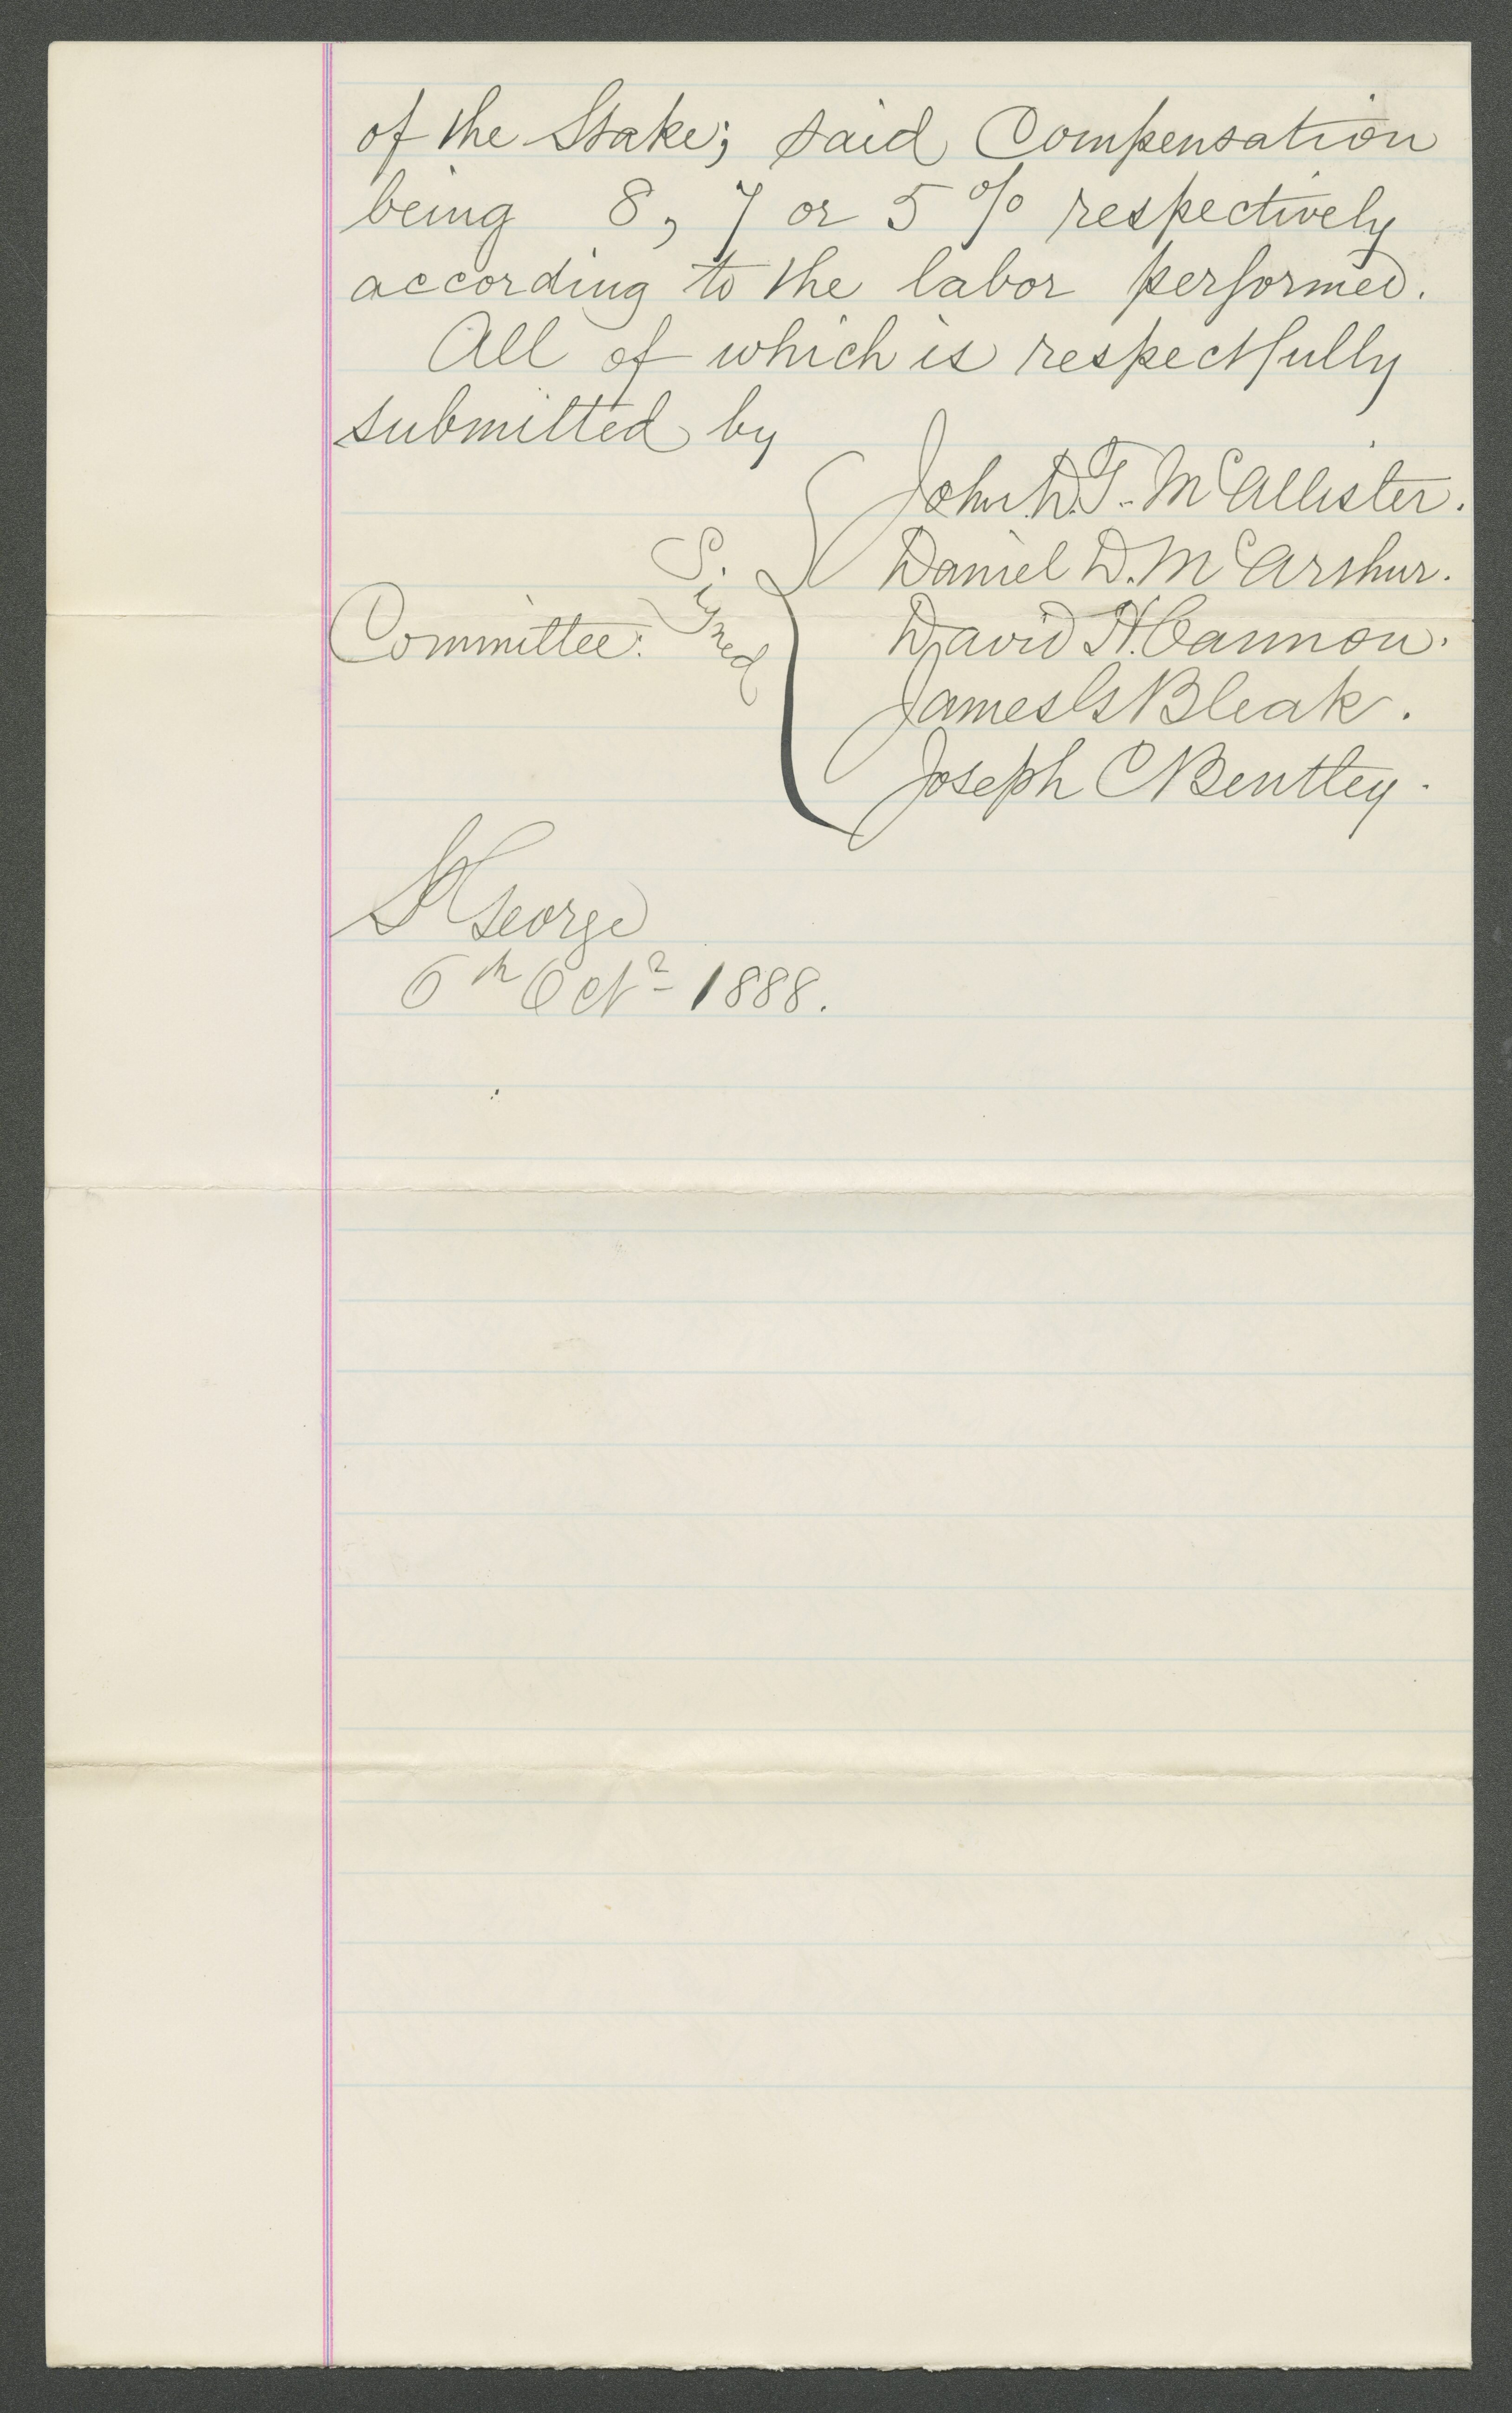 of the Stake; said Compensation
being 8, 7 or 5 % respectively
according to the labor performed.
All of which is respectfully
submitted by
John D. T. McAllister.
Daniel D. McArthur.
Committee: Signed David H. Cannon.
James G Bleak.
Joseph C Bentley.
St George
6th Octr 1888.